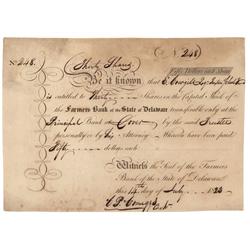 No 248.
$ 248
Thirty Shares
Fifty Dollars each Share
Be it known, that C. Cowgill
is entitled to Thirty Shares in the Capital Stock of
the Farmers Bank of the State of Delaware transferable only at the
Principal Bank at Dover by the said Trustee
personally or by his Attorney Whereon have been paid
Fifty dollars each
Witness the Seal of the Farmers
Bank of the State of Delaware
this 14th day of July